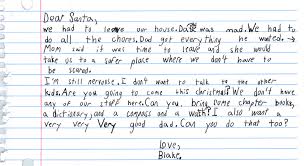 Dear Santa,
We had to leave our house. Dad was mad. We had to
do all the chores. Dad got everything he wanted.
Mom said it was time to leave and she would
take us to a safer place where we don't have to
be scared.
I'm still nervous. I don't want to talk to the other
kids. Are you going to come this christmas? We don't have
any of our stuff here. Can you bring some chapter books,
a dictionary, and a compass and a watch? I also want a
very very very good dad. Can you do that too?
Love,
Blake.